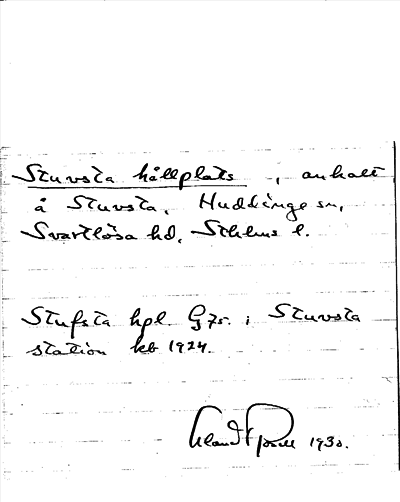 Stuvsta hållplats, anhalt
å Stuvsta, Huddinge sn,
Svartlösa hd, Sthlms l.
Stufsta hpl. G75. i Stuvsta
station kb 1924.
1930.